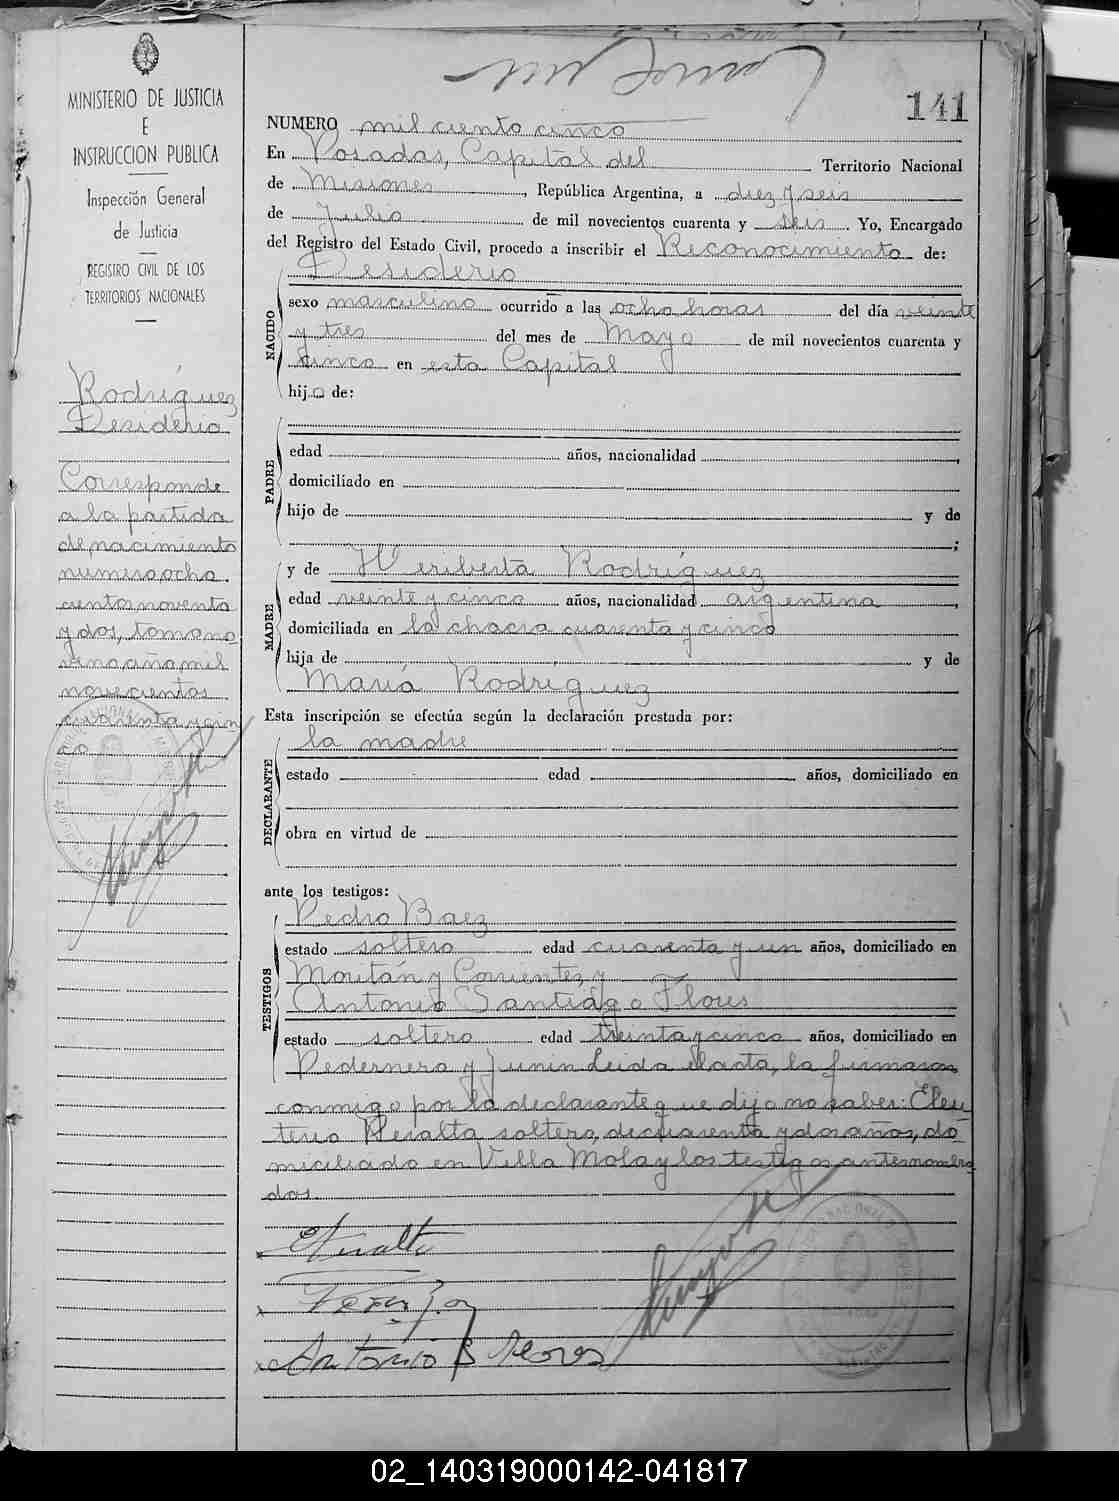 MINISTERIO DE JUSTICIA
E
INSTRUCCION PUBLICA
Inspección General
de Justicia
REGISTRO CIVIL DE LOS
TERRITORIOS NACIONALES
Rodríguez
Desiderio
Corresponde
a la partida
de nacimiento
numero ocho
cientos noventa
y dos, tomo no
veno año mil
novecientos
cuarenta y cin
co
141
NUMERO mil ciento cinco
En Posadas, Capital del Territorio Nacional
de Misiones, República Argentina, a diez y seis
de Julio de mil novecientos cuarenta y seis. Yo, Encargado
del Registro del Estado Civil, procedo a inscribir el Reconocimiento de:
Desiderio
NACIDO
sexo masculino ocurrido a las ocho horas del día veinte
y tres del mes de Mayo de mil novecientos cuarenta y
cinco en esta Capital
hijo de:
PADRE
edad años, nacionalidad ,
domiciliado en
hijo de y de
;
MADRE
y de Heriberta Rodríguez
edad veinte y cinco años, nacionalidad argentina,
domiciliada en la chacra cuarenta y cinco
hija de y de
María Rodríguez
Esta inscripción se efectúa según la declaración prestada por:
DECLARANTE
la madre
estado edad años, domiciliado en
obra en virtud de
ante los testigos:
TESTIGOS
Pedro Baez
estado soltero edad cuarenta y un años, domiciliado en
y Corrientes y
Antonio Santiago Flores
estado soltero edad treinta y cinco años, domiciliado en
Pedernera y Junin Leida el acta, la firmaron
conmigo por la declarante que dijo no saber: Eleu
terio Peralta, soltero, de cuarenta y dos años, do
miciliado en Villa Mola y los testigos antesnombra
dos.
EPeralta
Antonio S Flores
02_140319000142-041817